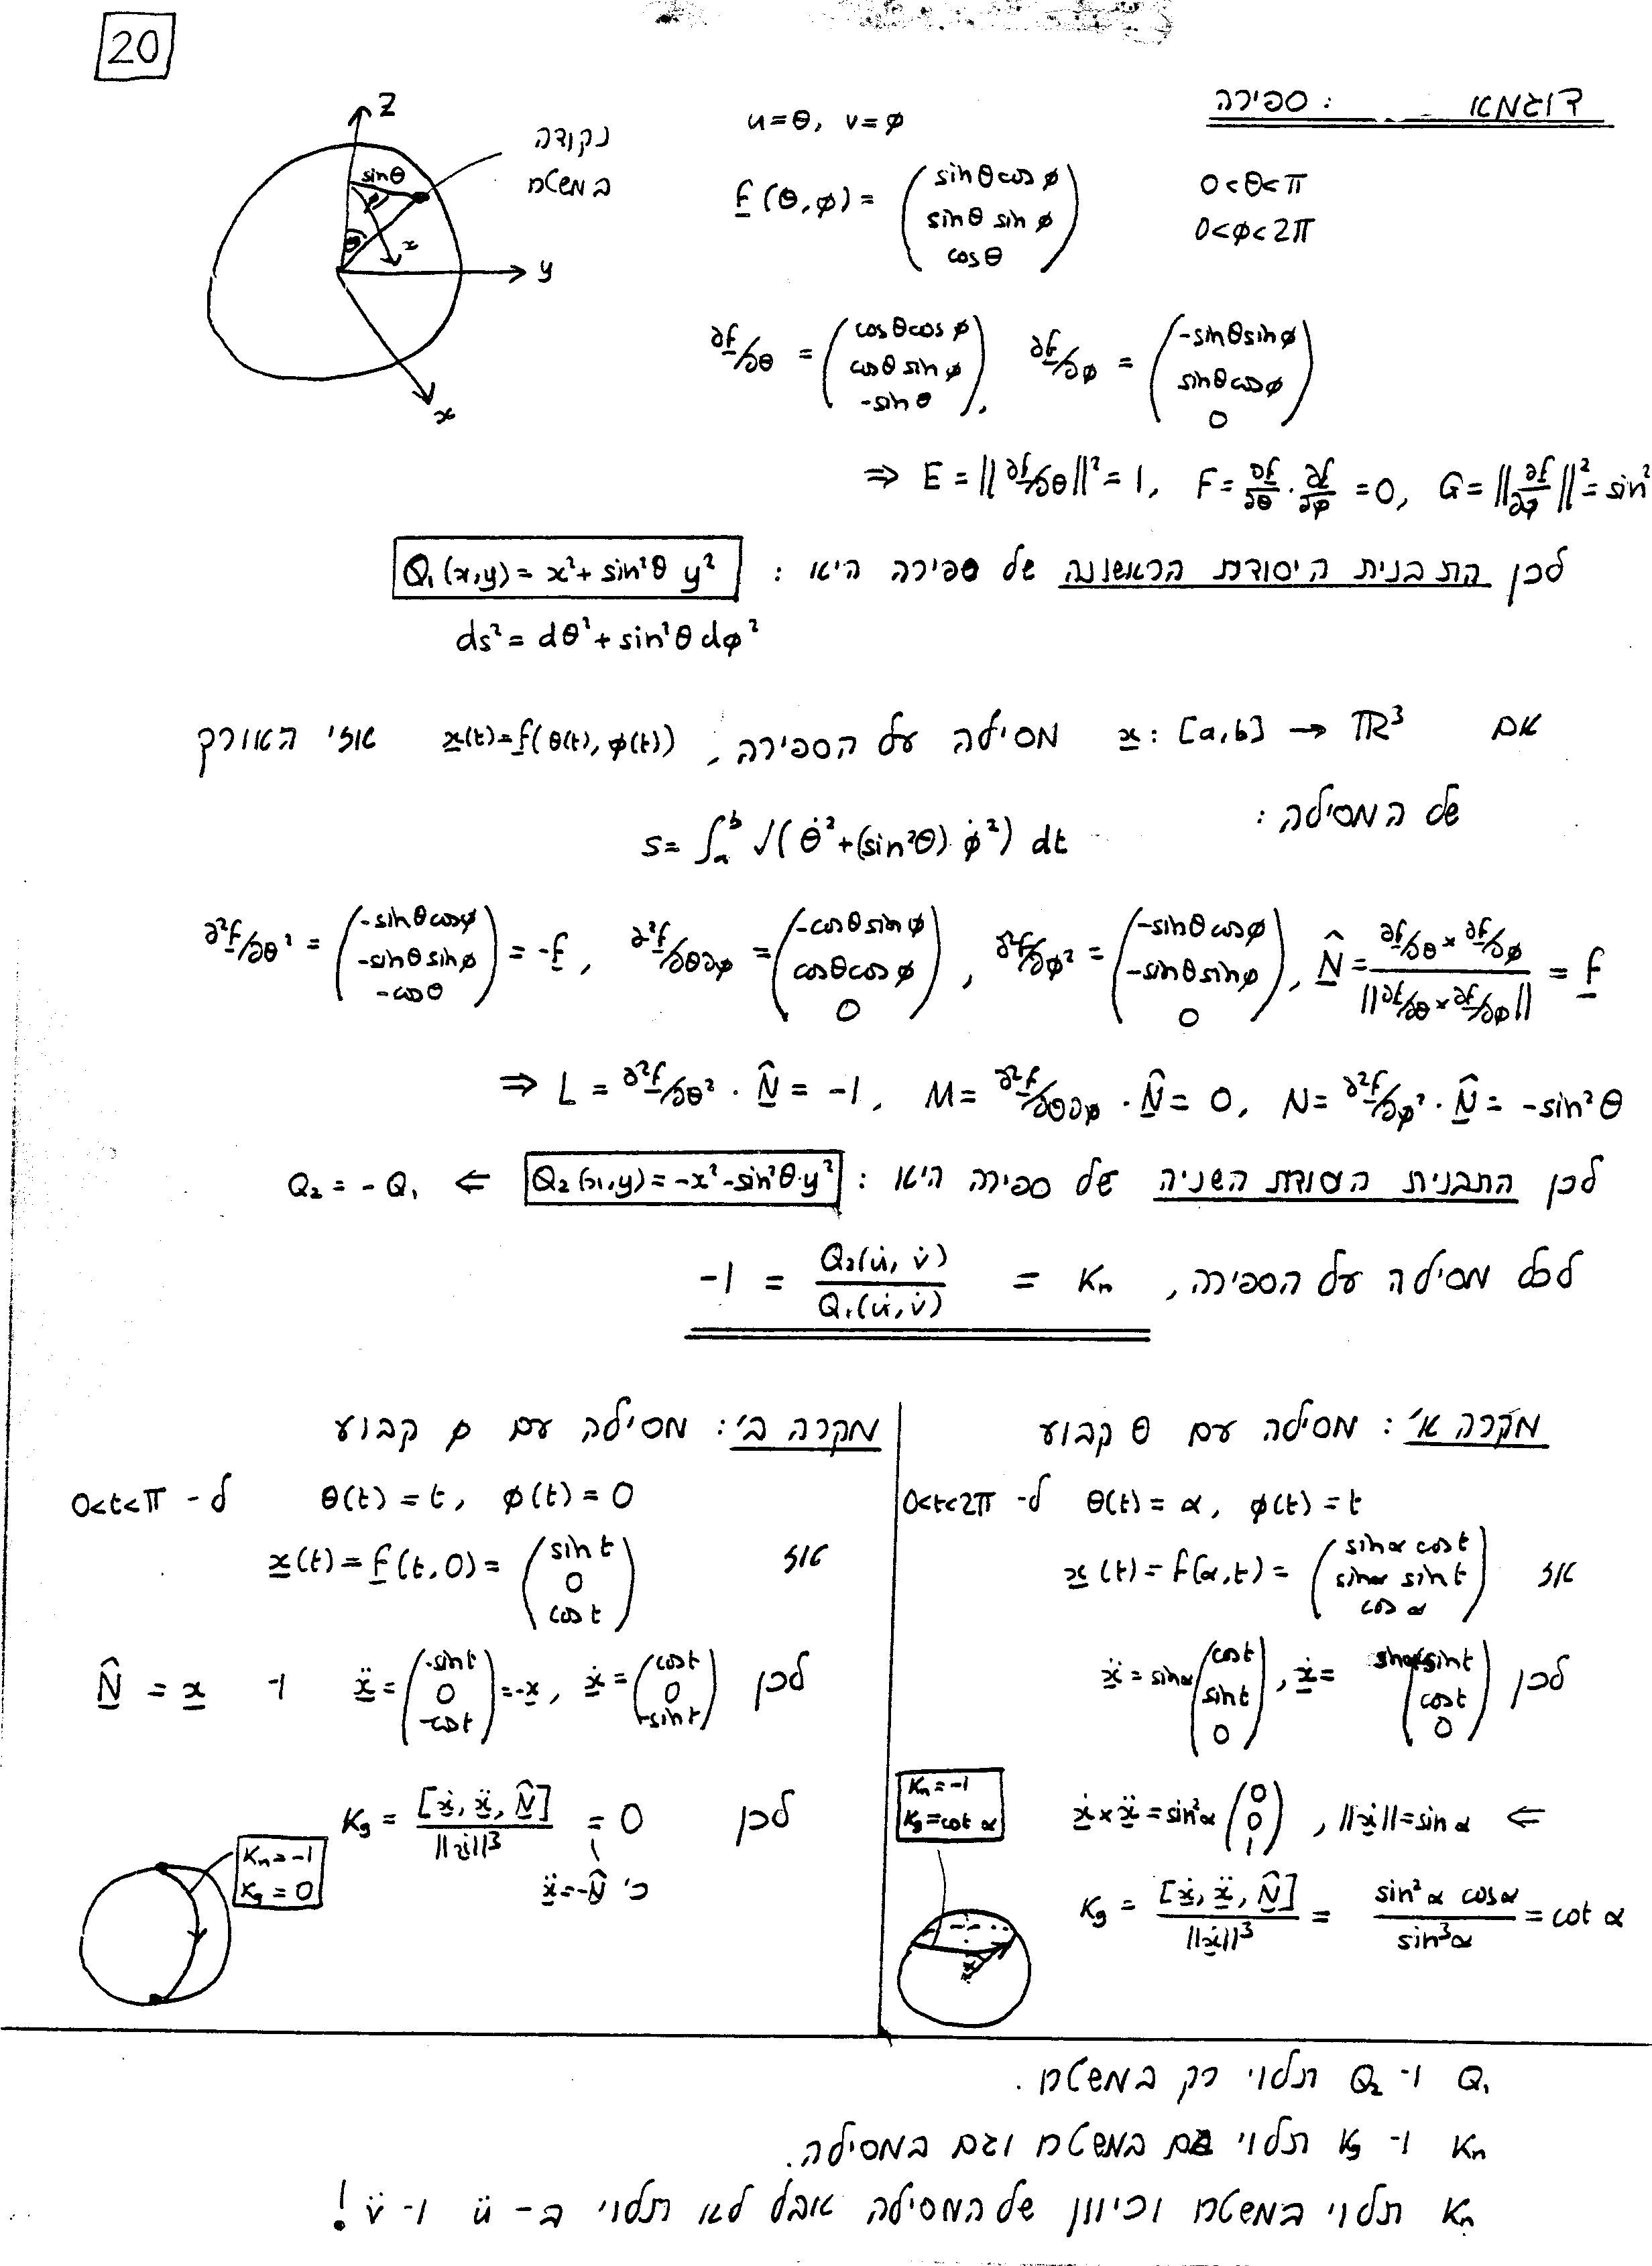 20
דוגמא : ספירה
z
sinθ
φ
θ
x
y
x
נקודה
במשטח
u=θ, v=φ
f(θ,φ) = (sinθcosφ, sinθ sinφ, cosθ) 0<θ<π
0<φ<2π
∂f/∂θ = (cosθcosφ, cosθ sinφ, -sinθ), ∂f/∂φ = (-sinθsinφ, sinθcosφ, 0)
⇒ E = ||∂f/∂θ||² = 1, F = ∂f/∂θ · ∂f/∂φ = 0, G = ||∂f/∂φ||² = sin²
לכן התבנית היסודת הראשונה של ספירה היא : Q₁(x,y) = x² + sin²θ y²
ds² = dθ² + sin²θ dφ²
אם x : [a,b] → ℝ³ מסילה על הספירה, x(t)=f(θ(t), φ(t)) אזי האורך
של המסילה :
s = ∫ₐᵇ √(θ̇² + (sin²θ) φ̇²) dt
∂²f/∂θ² = (-sinθcosφ, -sinθ sinφ, -cosθ) = -f, ∂²f/∂θ∂φ = (-cosθ sinφ, cosθcosφ, 0), ∂²f/∂φ² = (-sinθcosφ, -sinθsinφ, 0), N̂ = (∂f/∂θ × ∂f/∂φ) / ||∂f/∂θ × ∂f/∂φ|| = f
⇒ L = ∂²f/∂θ² · N̂ = -1, M = ∂²f/∂θ∂φ · N̂ = 0, N = ∂²f/∂φ² · N̂ = -sin²θ
לכן התבנית היסודת השניה של ספירה היא : Q₂(x,y) = -x² - sin²θ·y² ⇐ Q₂ = -Q₁
לכל מסילה על הספירה, -1 = Q₂(u̇, v̇) / Q₁(u̇, v̇) = κₙ
מקרה א' : מסילה עם θ קבוע
0<t<2π ל- θ(t) = α, φ(t) = t
אז x(t) = f(α,t) = (sinα cost, sinα sint, cosα)
לכן ẍ = sinα (cost, sint, 0), ẋ = (sint, cost, 0)
⇐ ẋ × ẍ = sin²α (0, 0, 1), ||ẋ|| = sinα
κg = [ẋ, ẍ, N̂] / ||ẋ||³ = sin²α cosα / sin³α = cot α
κₙ = -1
κg = cot α
α
מקרה ב' : מסילה עם φ קבוע
0<t<π ל- θ(t) = t, φ(t) = 0
אז x(t) = f(t,0) = (sin t, 0, cos t)
לכן ẍ = (-sint, 0, -cost) = -x, ẋ = (cost, 0, -sint) ו- N̂ = x
לכן κg = [ẋ, ẍ, N̂] / ||ẋ||³ = 0
כי ẍ = -N̂
κₙ = -1
κg = 0
Q₁ ו- Q₂ תלוי רק במשטח.
κₙ ו- κg תלוי גם במשטח וגם במסילה.
κₙ תלוי במשטח וכיוון של המסילה אבל לא תלוי ב- ü ו- v̈ !